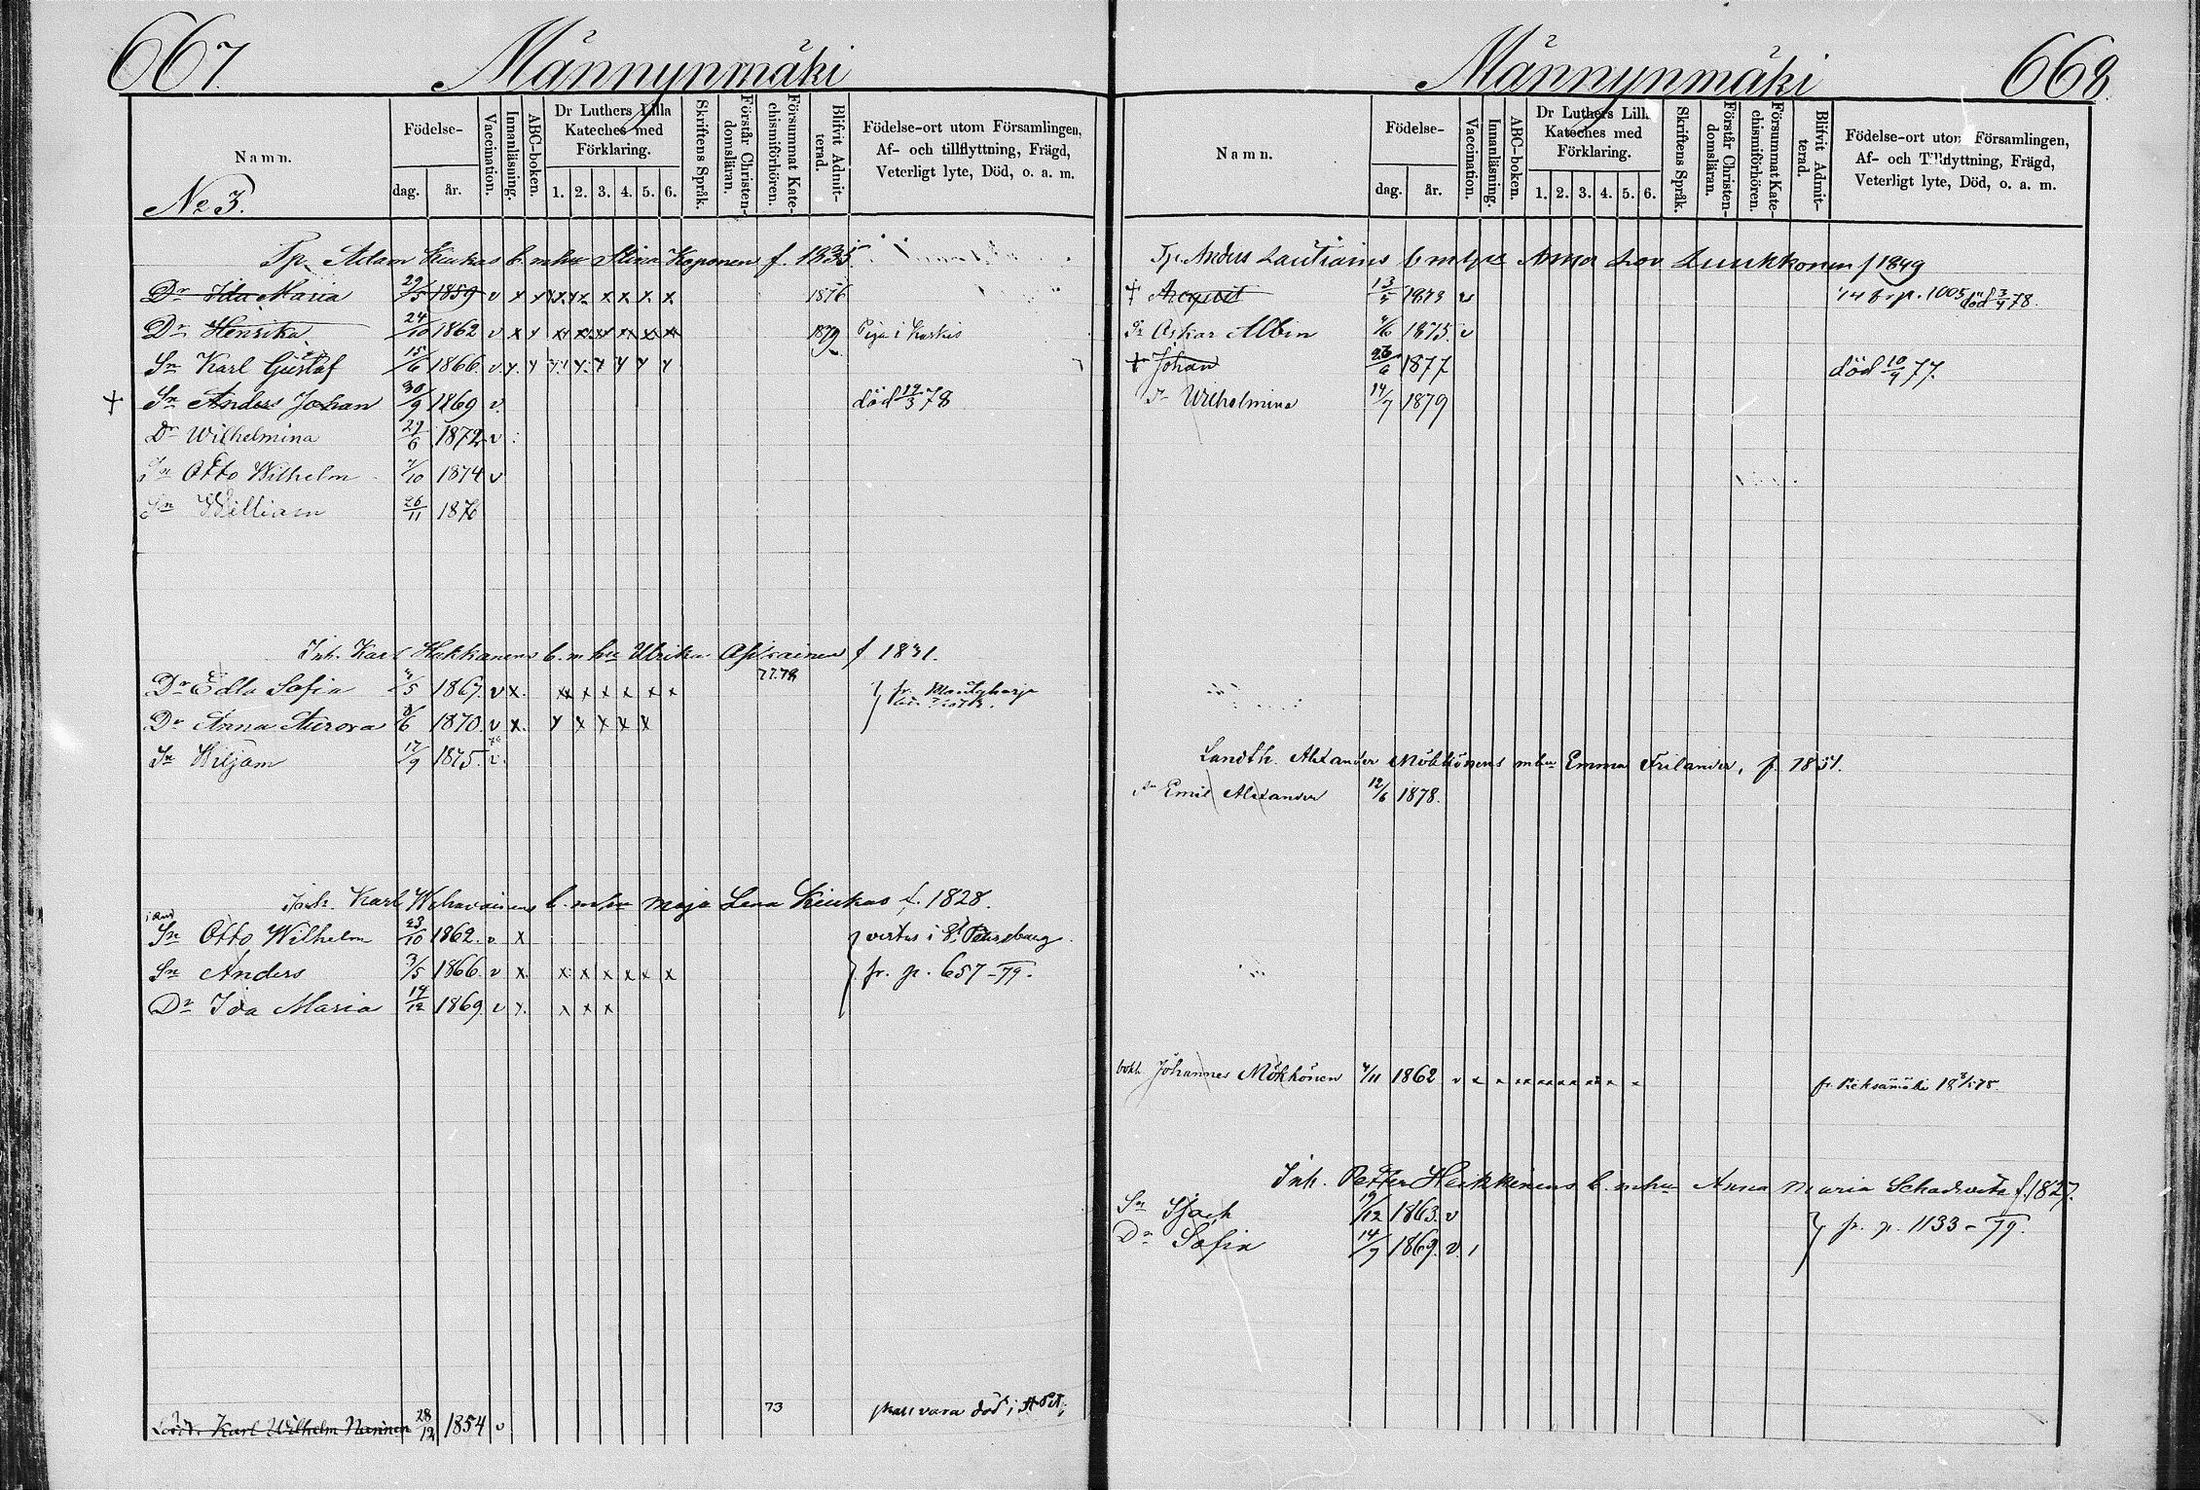 667.
Männynmäki
Namn.
Födelse-
dag.
år.
Vaccination.
Innanläsning.
ABC-boken.
Dr Luthers Lilla Kateches med Förklaring.
1. 2. 3. 4. 5. 6.
Skriftens Språk.
Förstår Christendomsläran.
Försummat Katechismiförhören.
Blifvit Admitterad.
Födelse-ort utom Församlingen,
Af- och tillflyttning, Frägd,
Veterligt lyte, Död, o. a. m.
No 3.
Tp. Adam Kiukas b. m hu Stina Koponen f. 1835
Dr Ida Maria 29/5 1859 v x x x x x x x x 1876
Dr Henrika 24/10 1862 v x x x x x x x x 1879 Piga i
Sn Karl Gustaf 15/6 1866 v x x x x x x x x
† Sn Anders Johan 30/9 1869 v. död 19/3 78
Dr Wilhelmina 29/6 1872 v
Sn Otto Wilhelm /10 1874 v
Sn William 26/11 1876
Inh. Karl Hakkanens b. m hu Ulrika f 1831.
77.78
Dr Edla Sofia /5 1867. v x. x x x x x x fr. Mäntyharju
Dr Anna Aurora 8/6 1870. v x. x x x x x
Sn Wiljam 17/9 1875. v.
Inh. Karl b. m hu Maja Lena Kiukas f. 1828.
Sn Otto Wilhelm 23/10 1862. v x vistas i St Petersburg.
Sn Anders 3/5 1866. v x. x x x x x x fr. p. 657 - 79.
Dr Ida Maria 19/12 1869 v x. x x x
Karl Wilhelm Narinen 28/12 1854 v 73 skall vara död i St Pet.
668.
Männynmäki
Namn.
Födelse-
dag.
år.
Vaccination.
Innanläsning.
ABC-boken.
Dr Luthers Lilla Kateches med Förklaring.
1. 2. 3. 4. 5. 6.
Skriftens Språk.
Förstår Christendomsläran.
Försummat Katechismiförhören.
Blifvit Admitterad.
Födelse-ort utom Församlingen,
Af- och Tillflyttning, Frägd,
Veterligt lyte, Död, o. a. m.
Tp. Anders Lautiains b m hu Anna Lov Luukkonen f 1849
† August 13/5 1873 v 74 fr. p. 1005 död 3/4 78.
Sn Oskar Albin /6 1875. v
† Johan 23/6 1877 död 10/9 77.
Dr Wilhelmina 14/7 1879
Landth. Alexander Mökkönens m hu Emma Frilander, f. 1851.
Sn Emil Alexander 12/6 1878.
Johannes Mökkönen /11 1862 v fr. Pieksämäki
Inh. Petter Heikkinens b. m hu Anna Maria f. 1827.
Sn Isack 19/12 1863. v fr. p. 1133 - 79.
Dr Sofia 14/9 1869. v.